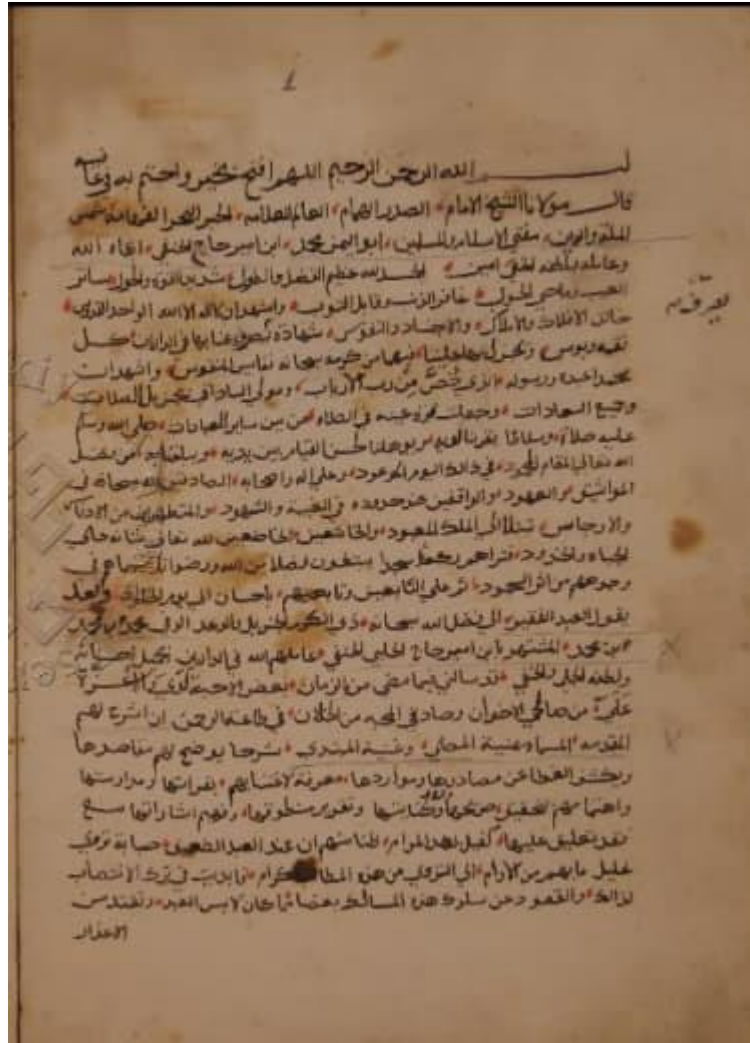 ١
بسم الله الرحمن الرحيم اللهم افتح بخير واختم به في عافيه
قال مولانا الشيخ الامام الصدر الهمام العالم العلامه الحبر البحر الفهامه شمس
المله والدين مفتي الاسلام والمسلمين ابو اليمن محمد ابن امير حاج الحنفي ابقاه الله
وعامله بلطفه الخفي امين الحمد لله عظيم الفضل والطول شديد القوة والحول ساتر
العيب وماحي الحوب غافر الذنب وقابل التوب واشهد ان لا اله الا الله الواحد القدوس
خالق الافلاك والاملاك والاجساد والنفوس شهادة عنا بها في الدارين كل
نقمه وبوس ويجزل بها علينا فيهما من كرمه سبحانه نفايس واشهد ان
محمدا عبده ورسوله الذي من رب الارباب ومولى السادات بجزيل الصلات
وجميع السعادات وجعلت قرة عينه في الصلاه من بين ساير العبادات صلى الله وسلم
عليه صلاة وسلاما لحسن القيام بين يديه من فضل
الله تعالى المقام في ذلك اليوم الموعود وعلى اله واصحابه الصادقين لله سبحانه في
المواثيق والعهود والواقفين عند حدوده في الغيبة والشهود والمتطهرين من الادناس
والارجاس تبتلا الى الملك المعبود والخاشعين الخاضعين لله تعالى شانه حالتي
الجباه والخدود تراهم ركعا سجدا يبتغون فضلا من الله ورضوانا سيماهم في
وجوههم من اثر السجود ثم على التابعين وتابعيهم باحسان الى يوم وبعد
يقول العبد الفقير الى فضل الله سبحانه ذو الكرم الجزيل والوعد الوفي محمد بن محمد
بن محمد المشتهر بابن امير حاج الحلبي الحنفي عاملهم الله في الدارين بجميل احسانه
ولطفه الجلي والخفي قد سالني فيما مضى من الزمان بعض الاحبة الاعزة
علي من صالحي الاخوان وصادقي المحبه من الخلان في طاعة الرحمن ان اشرح لهم
المقدمه المسماه منية المصلي وغنية المبتدي شرحا يوضح لهم مقاصدها
ويكشف الغطا عن مصادرها ومواردها معرفة لاعتنايهم بقراتها ومدارستها
واهتمامهم لتحقيق وتقرير منطوقها وفهم اشاراتها مع
نقد تعليق عليها كفيل بهذا المرام ان عند العبد الضعيف صبابة تروي
غليل ما بهم من الاوام الى الترقي من هذه فابديت في ترك الانتصاب
لذلك والقعود عن سلوك هذه المسالك بعض ما كان لابس العبد وتلبس من
الاعذار